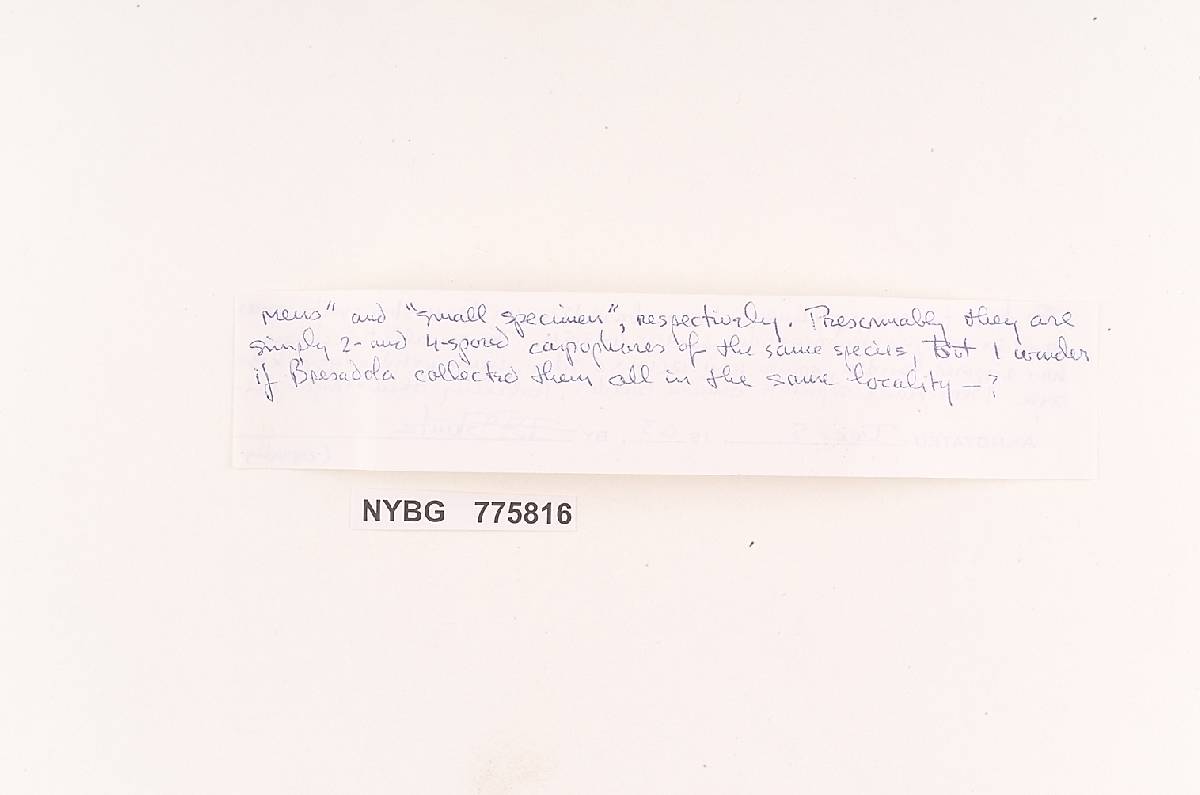 mens" and "small specimen", respectively. Presumably they are
simply 2- and 4-spored carpophores of the same species, but I wonder
if Bresadola collected them all in the same locality —?
NYBG 775816